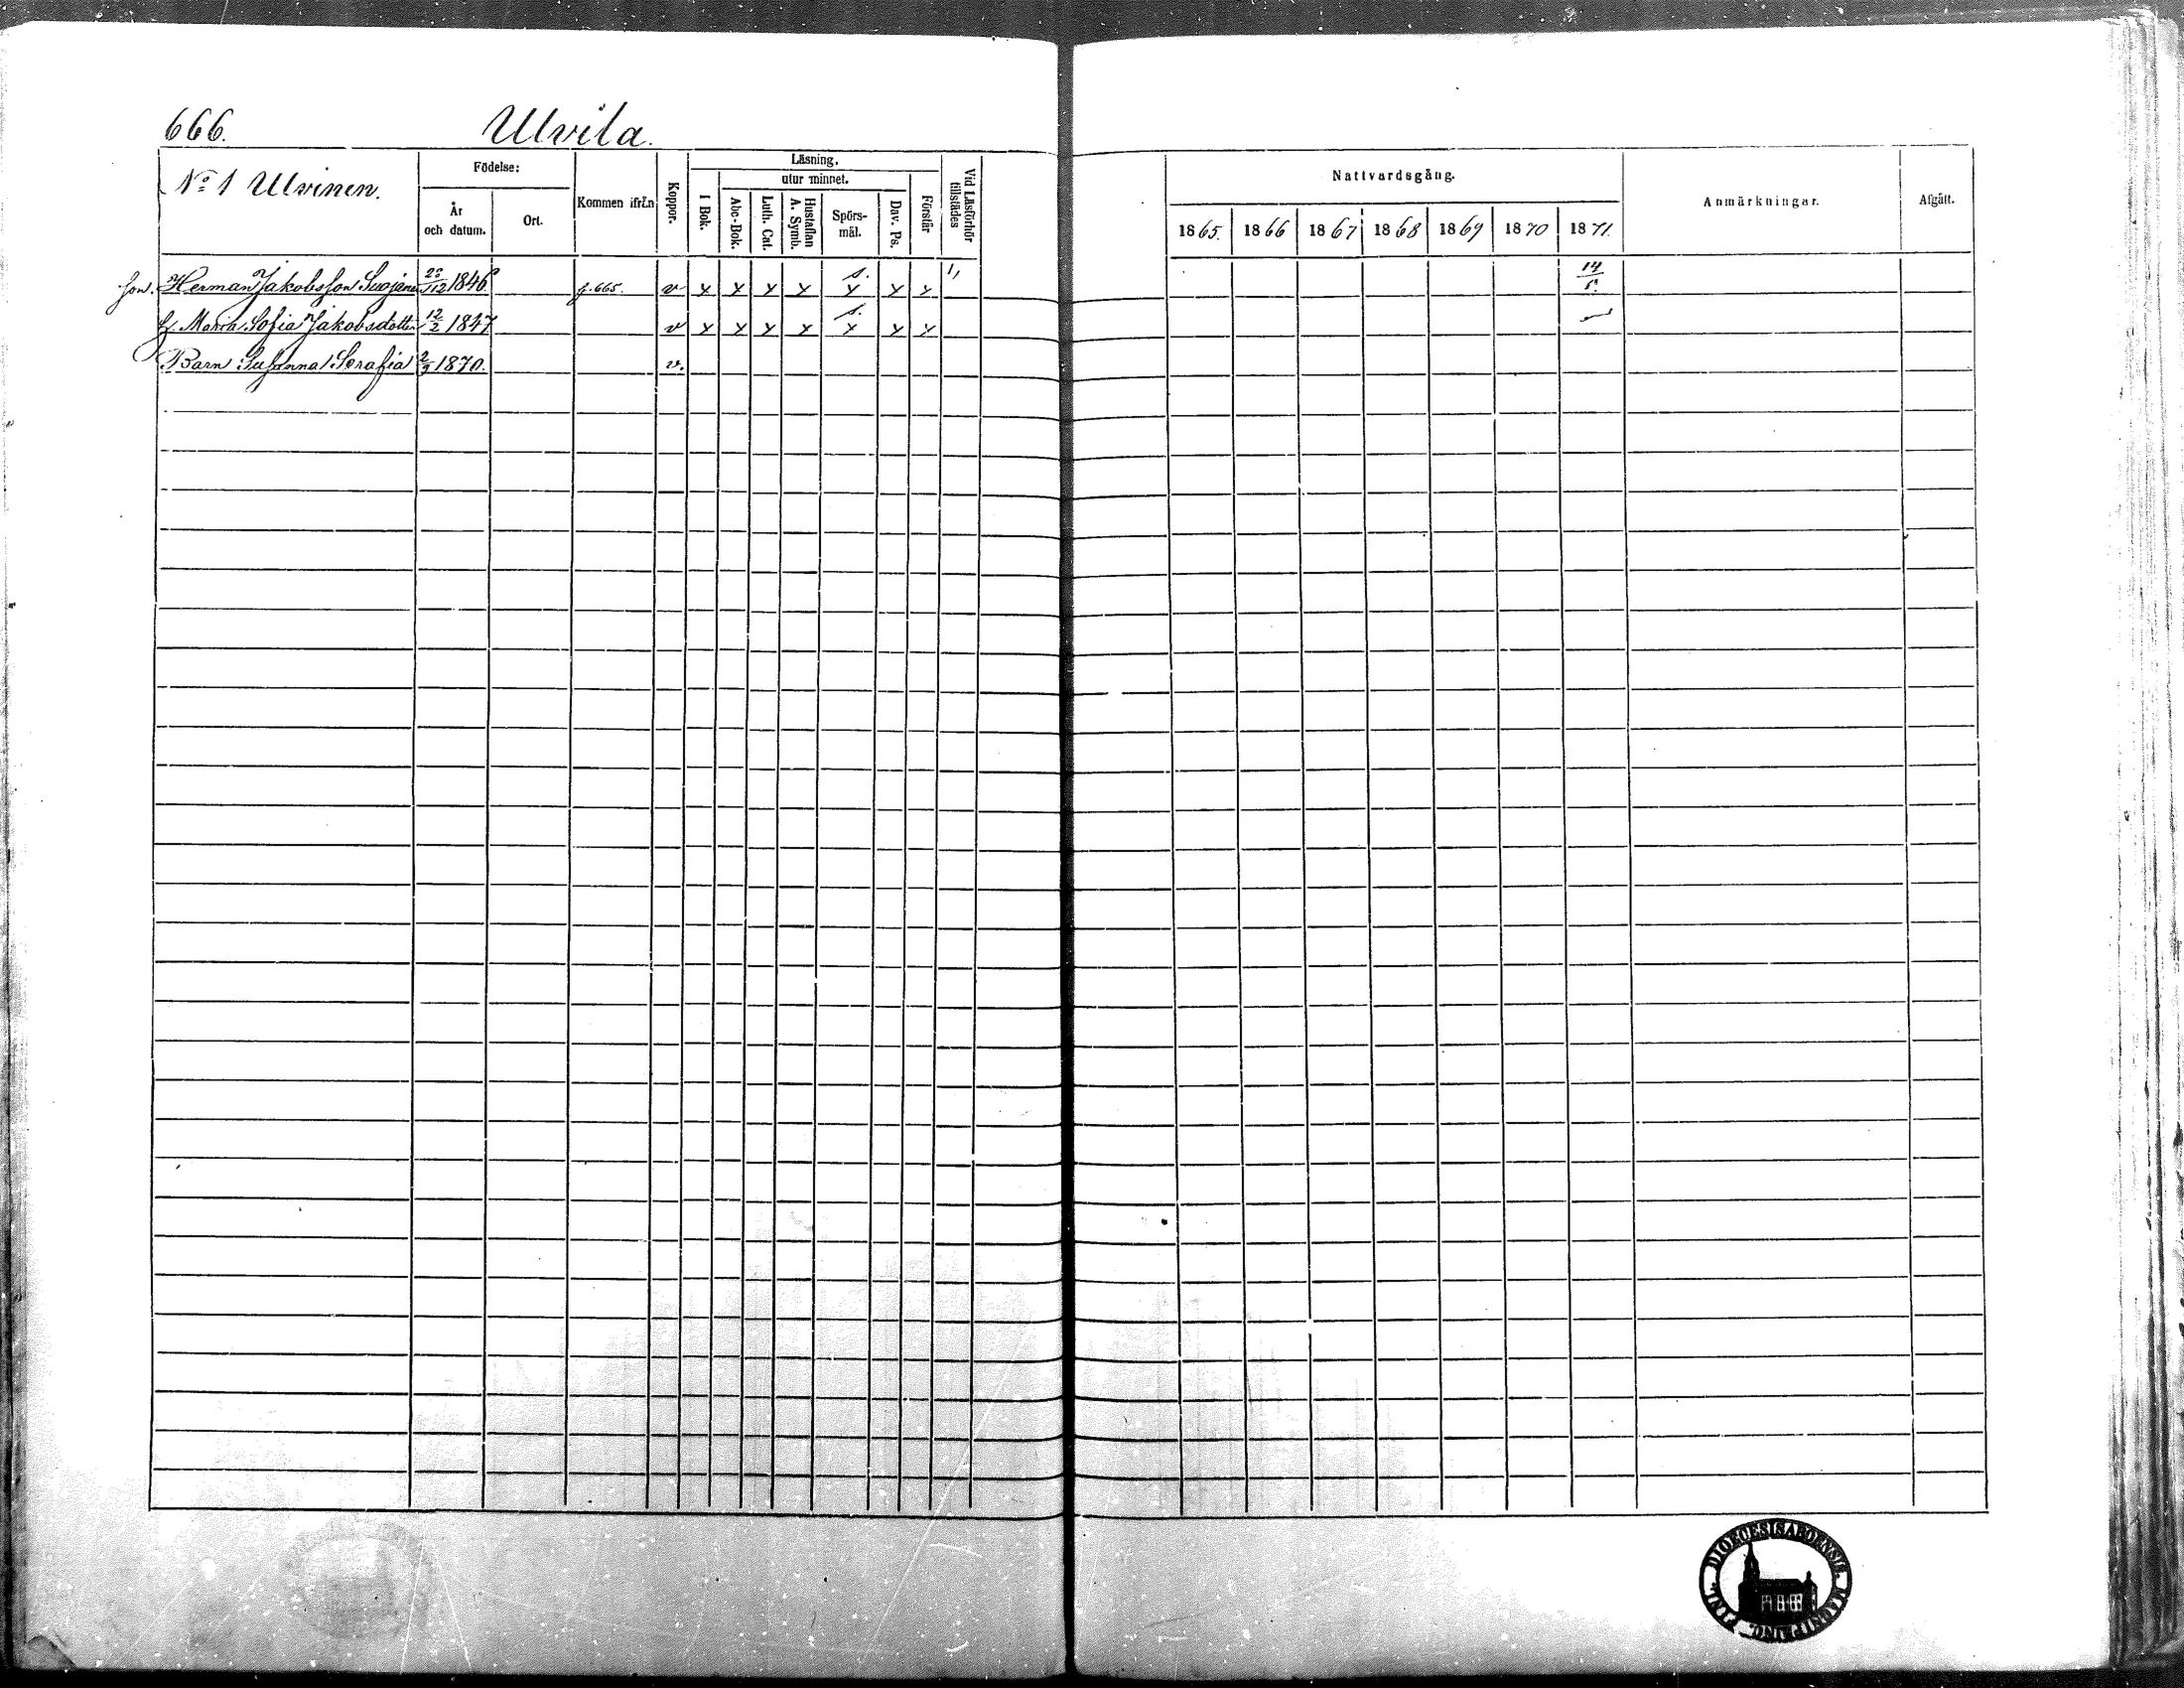 666. Ulvila.
No 1 Ulvinen.
Födelse:
År och datum.
Ort.
Kommen ifrån
Koppor.
Läsning.
I Bok.
utur minnet.
Abc-Bok.
Luth. Cat.
Hustaflan A. Symb.
Spörs-mål.
Dav. Ps.
Förstår
Vid Läsförhör tillstädes
Nattvardsgång.
1865. 1866 1867 1868 1869 1870 1871.
Anmärkningar.
Afgått.
son. Herman Jakobsson Suojanen 1846 f. 665. v x x x x s. x x x 14
h. Maria Sofia Jakobsdotter 12/2 1847 v x x x x s. x x x
Barn Susanna Serafia 2/9 1870. v.
DIOECESIS ABOENSIS. MAGNI PRINC. FINL.